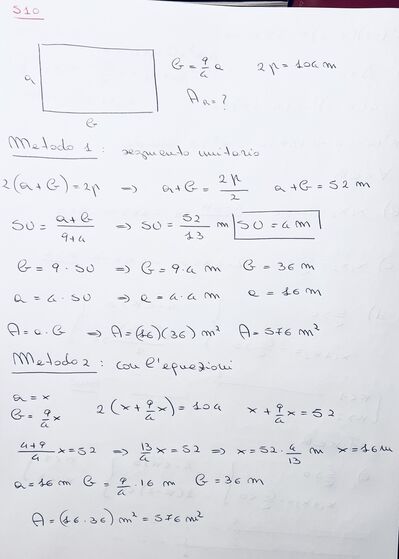 510
b = 9/4 a   2p = 104 m
a
A_R = ?
b
Metodo 1 : segmento unitario
2(a+b) = 2p ⇒ a+b = 2p/2   a+b = 52 m
SU = (a+b)/(9+4) ⇒ SU = 52/13 m   SU = 4 m
b = 9 · SU ⇒ b = 9·4 m   b = 36 m
a = 4 · SU ⇒ a = 4·4 m   a = 16 m
A = a·b ⇒ A = (16)(36) m²   A = 576 m²
Metodo 2 : con l'equazioni
a = x
b = 9/4 x   2(x + 9/4 x) = 104   x + 9/4 x = 52
(4+9)/4 x = 52 ⇒ 13/4 x = 52 ⇒ x = 52 · 4/13 m   x = 16 m
a = 16 m   b = 9/4 · 16 m   b = 36 m
A = (16·36) m² = 576 m²